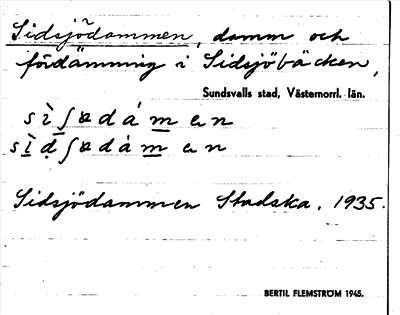 Sidsjödammen, damm och
fördämning i Sidsjöbäcken,
Sundsvalls stad, Västernorrl. län.
sìʃɵdámen
sìḍʃɵdámen
Sidsjödammen Stadska. 1935.
BERTIL FLEMSTRÖM 1945.